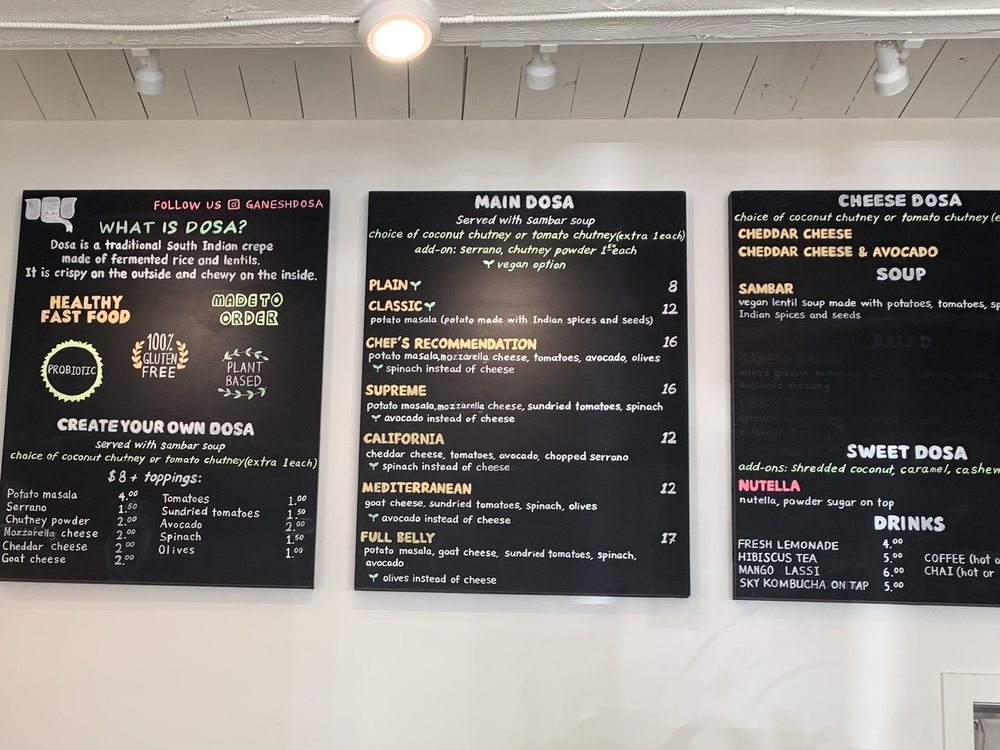 FOLLOW US GANESHDOSA
WHAT IS DOSA?
Dosa is a traditional South Indian crepe
made of fermented rice and lentils.
It is crispy on the outside and chewy on the inside.
HEALTHY
FAST FOOD
MADE TO
ORDER
PROBIOTIC
100%
GLUTEN
FREE
PLANT
BASED
CREATE YOUR OWN DOSA
served with sambar soup
choice of coconut chutney or tomato chutney(extra 1 each)
$8 + toppings:
Potato masala 4.00
Serrano 1.50
Chutney powder 2.00
Mozzarella cheese 2.00
Cheddar cheese 2.00
Goat cheese 2.00
Tomatoes 1.00
Sundried tomatoes 1.50
Avocado 2.00
Spinach 1.50
Olives 1.00
MAIN DOSA
Served with sambar soup
choice of coconut chutney or tomato chutney(extra 1 each)
add-on: serrano, chutney powder 1.50 each
vegan option
PLAIN 8
CLASSIC 12
potato masala (potato made with Indian spices and seeds)
CHEF'S RECOMMENDATION 16
potato masala, mozzarella cheese, tomatoes, avocado, olives
spinach instead of cheese
SUPREME 16
potato masala, mozzarella cheese, sundried tomatoes, spinach
avocado instead of cheese
CALIFORNIA 12
cheddar cheese, tomatoes, avocado, chopped serrano
spinach instead of cheese
MEDITERRANEAN 12
goat cheese, sundried tomatoes, spinach, olives
avocado instead of cheese
FULL BELLY 17
potato masala, goat cheese, sundried tomatoes, spinach,
avocado
olives instead of cheese
CHEESE DOSA
choice of coconut chutney or tomato chutney
CHEDDAR CHEESE
CHEDDAR CHEESE & AVOCADO
SOUP
SAMBAR
vegan lentil soup made with potatoes, tomatoes,
Indian spices and seeds
SALAD
GANESH SALAD
mixed greens, tomatoes, avocado, carrots, dates,
balsamic dressing
balsamic dressing
SWEET DOSA
add-ons: shredded coconut, caramel, cashew
NUTELLA
nutella, powder sugar on top
DRINKS
FRESH LEMONADE 4.00
HIBISCUS TEA 5.00
MANGO LASSI 6.00
SKY KOMBUCHA ON TAP 5.00
COFFEE (hot o
CHAI (hot or